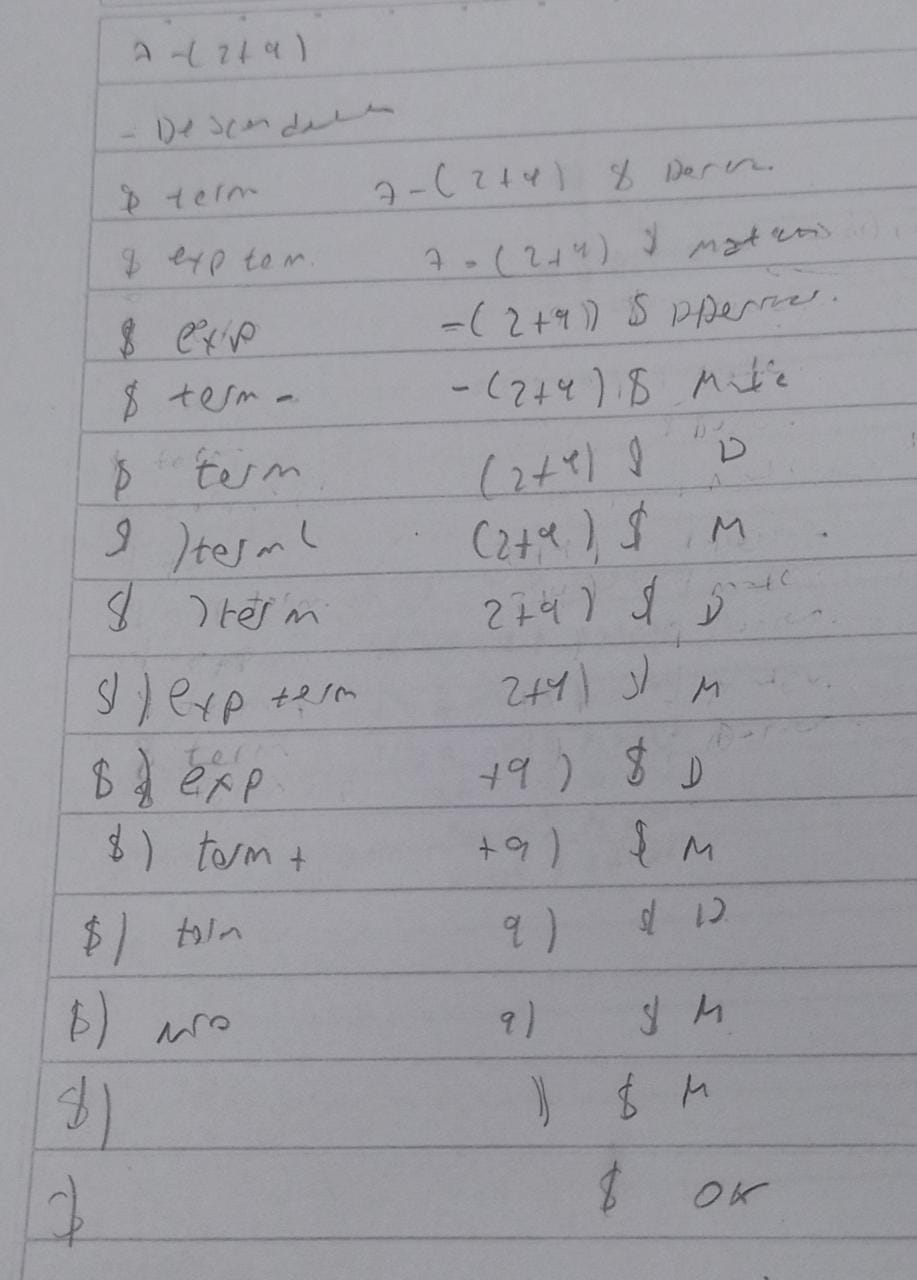 7 -(2+9)
- Descendente
$ term 7-(2+9) $ Deriv.
$ exp term 7-(2+9) $
$ exp -(2+9)) $
$ term - -(2+9) $
$ term (2+9) $ D
$ )term( (2+9) $ M
$ )term 2+9) $ D
$) exp term 2+9) $ M
$) exp +9) $ D
$) term + +9) $ M
$) term 9) $ D
$) nro 9) $ M
$) ) $ M
$ $ OK